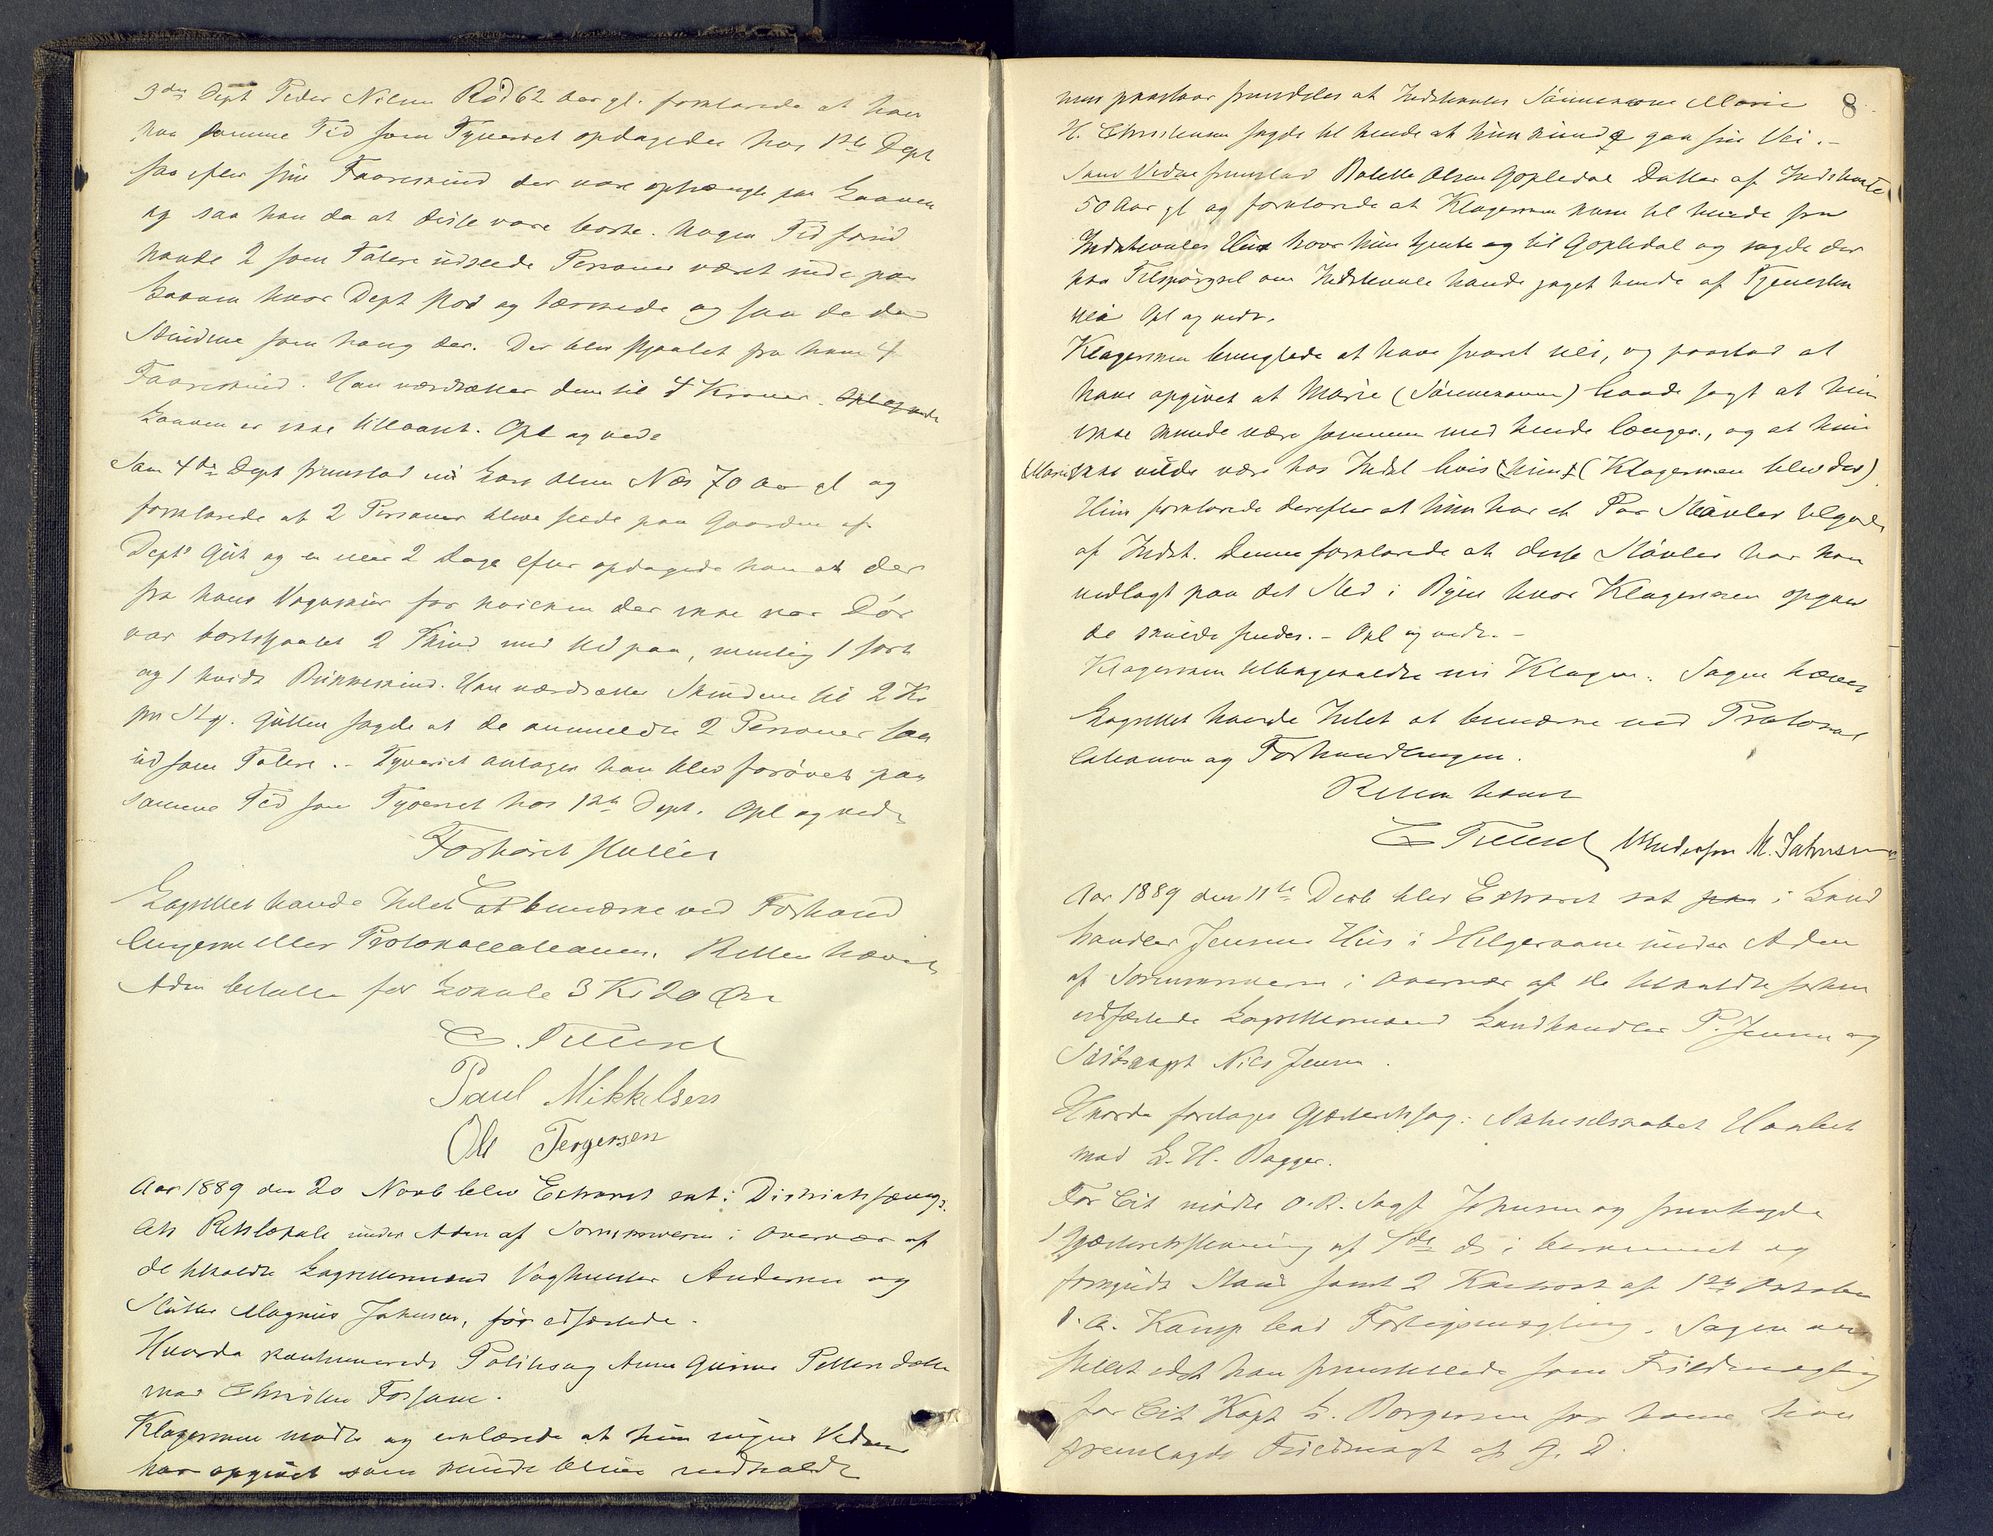 3die Dept Peder Nilsen Rød 62 Aar gl. forklarede at han
paa samme Tid som Tyveriet opdagedes hos 1ste Dept
saa efter sine Faareskind der vare ophængte paa Laaven
og saa han da at disse vare borte. Nogen Tid forud
havde 2 som Tatere udseede Personer været inde paa
Laaven hvor Dept stod og tærskede og saa de da
Skindene som hang der. Der blev stjaalet fra ham 4
Faareskind. Han værdsætter dem til 4 Kroner. Opl og vedt
Laaven er ikke tillaaset. Opl og vedt
Som 4de Dept fremstod nu Lars Olsen Næs 70 Aar gl og
forklarede at 2 Personer bleve seede paa Gaarden af
Depts Gut og en eller 2 Dage efter opdagede han at der
fra hans Vognskur for hvilken der ikke var Dør
var bortstjaalet 2 Skind med Uld paa, nemlig 1 sort
og 1 hvidt Bukkeskind. Han værdsætter Skindene til 2 Kr
pr Stk. Gutten sagde at de anmeldte 2 Personer saa
ud som Tatere. - Tyveriet antager han blev forøvet paa
samme Tid som Tyveriet hos 1ste Dept. Opl og vedt
Forhøret sluttet
Lagrettet havde Intet at bemærke ved Forhand
lingerne eller Protokollationen. Retten hævet
Adm betalte for Lokale 3 Kr 20 Øre
Paul Mikkelsen
Ole Tergersen
Aar 1889 den 20 Novb blev Extraret sat i Distriktsfængs-
lets Retslokale under Adm af Sorenskriveren i Overvær af
de tilkaldte Lagrettesmænd Vognmester Andersen og
Magnus Johnsen, før edfæstede.
Hvorda kontinuerede Politisag Anne Gurine Pettersdatter
mod Christen Forsane.
Klagersken mødte og erklærede at hun ingen Vidner
har opgivet som kunde blive indkaldt
8
men paastaar fremdeles at Indstevntes Sønnekone Marie
H. Christensen sagde til hende at hun kunde gaa sin Vei. -
Som Vidne fremstod Bolette Olsen Gopledal Datter af Indstevnte
50 Aar gl og forklarede at Klagersken kom til hende fra
Indstevntes Hus hvor hun tjente og til Gopledal og sagde der
paa Tilspørgsel om Indstevnte havde jaget hende af Tjenesten
nei Opl og vedt.
Klagersken benegtede at have svaret nei, og paastod at
have opgivet at Marie (Sønnekonen) havde sagt at hun
ikke kunde være sammen med hende længer, og at hun
(Marie) ikke vilde være hos Indst hvis hun (Klagersken blev der)
Hun forklarede derefter at hun har et Par Støvler tilgode
af Indst. Denne forklarede at disse Støvler har han
nedlagt paa det Sted i Byen hvor Klagersken opgav
de skulde sendes. - Opl og vedt. -
Klagersken tilbagekaldte nu Klagen. Sagen hæves
Lagrettet havde Intet at bemærke ved Protokol
lationen og Forhandlingen.
Retten hævet
Andersen M. Johnsen
Aar 1889 den 11te Decb blev Extraret sat paa i Land
handler Jensens Hus i Helgeroaen under Adm
af Sorenskriveren i Overvær af de tilkaldte forhen
edfæstede Lagrettesmænd Landhandler P. Jensen og
Nils Jensen.
Hvorda foretoges Gjesteretssag: Aktieselskabet Haabet
mod L. H. Bagger.
For Cit mødte O.R. Sagf Johnsen og fremlagde
Gjesteretsstevning af 7de ds i berammet og
forkyndt Stand samt 2 af 1ste Oktober
d.A. Kamp bad Forligsmægling. Sagen
for Cit Kapt L. Borgersen for hvem han
fremlagde Fuldmagt af G. D.